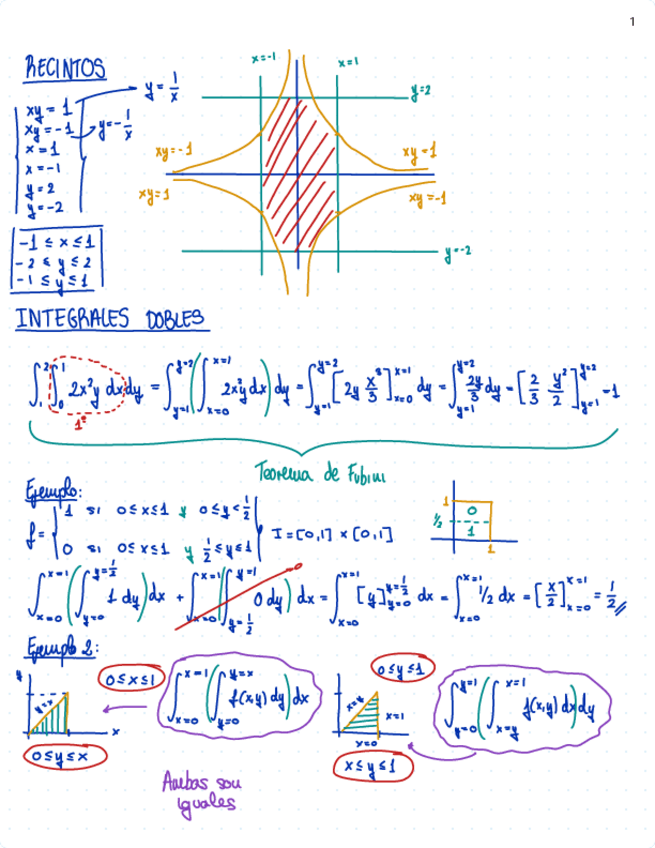 1
RECINTOS
xy = 1 → y = 1/x
xy = -1 → y = -1/x
x = 1
x = -1
y = 2
y = -2
-1 ≤ x ≤ 1
-2 ≤ y ≤ 2
-1 ≤ y ≤ 1
x=-1
x=1
y=2
xy=-1
xy=1
xy=1
xy=-1
y=-2
INTEGRALES DOBLES
∫₁² ∫₀¹ 2x²y dx dy = ∫_{y=1}^{y=2} ( ∫_{x=0}^{x=1} 2x²y dx ) dy = ∫_{y=1}^{y=2} [ 2y x³/3 ]_{x=0}^{x=1} dy = ∫_{y=1}^{y=2} 2y/3 dy = [ 2/3 y²/2 ]_{y=1}^{y=2} = 1
1º
Teorema de Fubini
Ejemplo:
f = { 1 si 0 ≤ x ≤ 1 y 0 ≤ y < 1/2
0 si 0 ≤ x ≤ 1 y 1/2 ≤ y ≤ 1 } I = [0,1] × [0,1]
1
0
1/2
1
1
∫_{x=0}^{x=1} ( ∫_{y=0}^{y=1/2} 1 dy ) dx + ∫_{x=0}^{x=1} ( ∫_{y=1/2}^{y=1} 0 dy ) dx = ∫_{x=0}^{x=1} [y]_{y=0}^{y=1/2} dx = ∫_{x=0}^{x=1} 1/2 dx = [ x/2 ]_{x=0}^{x=1} = 1/2
0
Ejemplo 2:
y
y=x
x
0 ≤ x ≤ 1
0 ≤ y ≤ x
∫_{x=0}^{x=1} ( ∫_{y=0}^{y=x} f(x,y) dy ) dx
x=y
x=1
y=0
0 ≤ y ≤ 1
x ≤ y ≤ 1
∫_{y=0}^{y=1} ( ∫_{x=y}^{x=1} f(x,y) dx ) dy
Ambas son
iguales